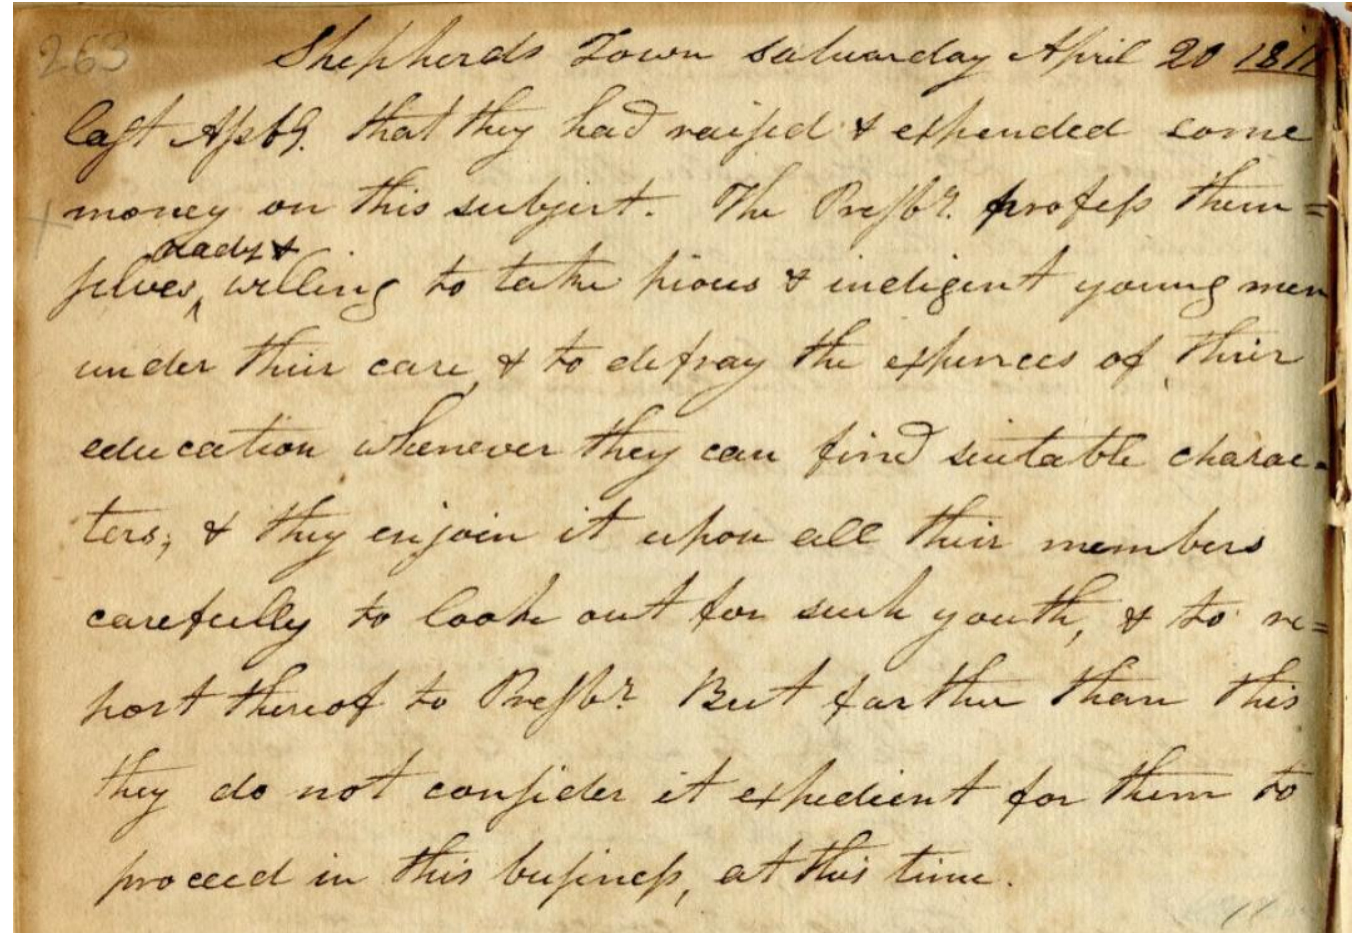 263
Shepherds Town saturday April 20 1811
last Assbỹ. that they had raised & expended some
money on this subject. The Presbỹ. profess them=
ready &
selves, willing to take pious & indigent young men
under their care, & to defray the expences of their
education whenever they can find suitable charac-
ters; & they enjoin it upon all their members
carefully to look out for such youth, & to re=
port thereof to Presbỹ. But farther than this
they do not consider it expedient for them to
proceed in this business, at this time.